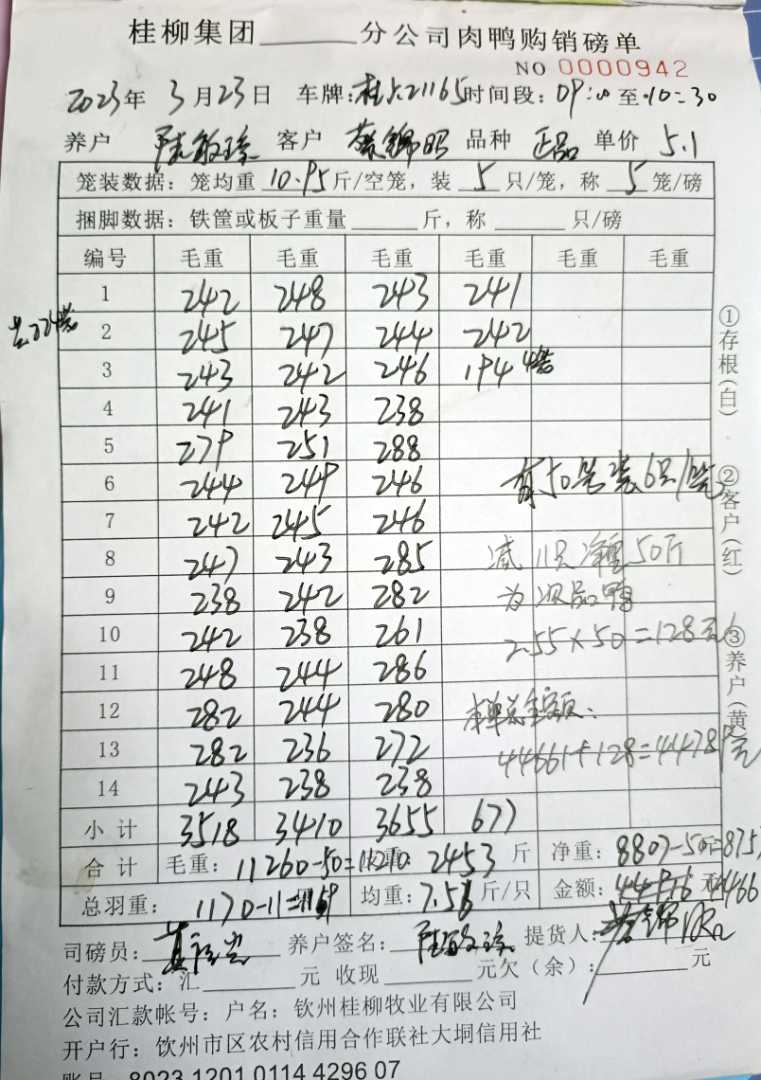 桂柳集团______分公司肉鸭购销磅单
NO 0000942
2023年 3月23日 车牌:桂 21165 时间段:09:00至10:30
养户 陆敏 客户 黄锦昭 品种 正品 单价 5.1
笼装数据:笼均重 10.95斤/空笼,装 5 只/笼,称 5 笼/磅
捆脚数据:铁筐或板子重量______斤,称______只/磅
编号 毛重 毛重 毛重 毛重 毛重 毛重
1 242 248 243 241
共224笼
2 245 247 244 242
3 243 242 246 194 4笼
4 241 243 238
5 279 251 288
6 244 249 246 有50笼装6只/笼
7 242 245 246
8 247 243 285 减11只净重50斤
9 238 242 282 为次品鸭
10 242 238 261 2.55×50=128元
11 248 244 286
12 282 244 280 本单总金额:
13 282 236 272 44661+128=44789元
14 243 238 238
小计 3518 3410 3655 677
合计 毛重:11260-50=11210 2453 斤 净重:8807-50=8757
总羽重: 1170-11=1159 均重:7.56 斤/只 金额: 元
司磅员: 养户签名:陆敏 提货人:黄锦昭
付款方式:汇______元 收现______元欠(余):______元
公司汇款帐号:户名:钦州桂柳牧业有限公司
开户行:钦州市区农村信用合作联社大垌信用社
账号 8023 1201 0114 4296 07
①存根(白)
②客户(红)
③养户(黄)